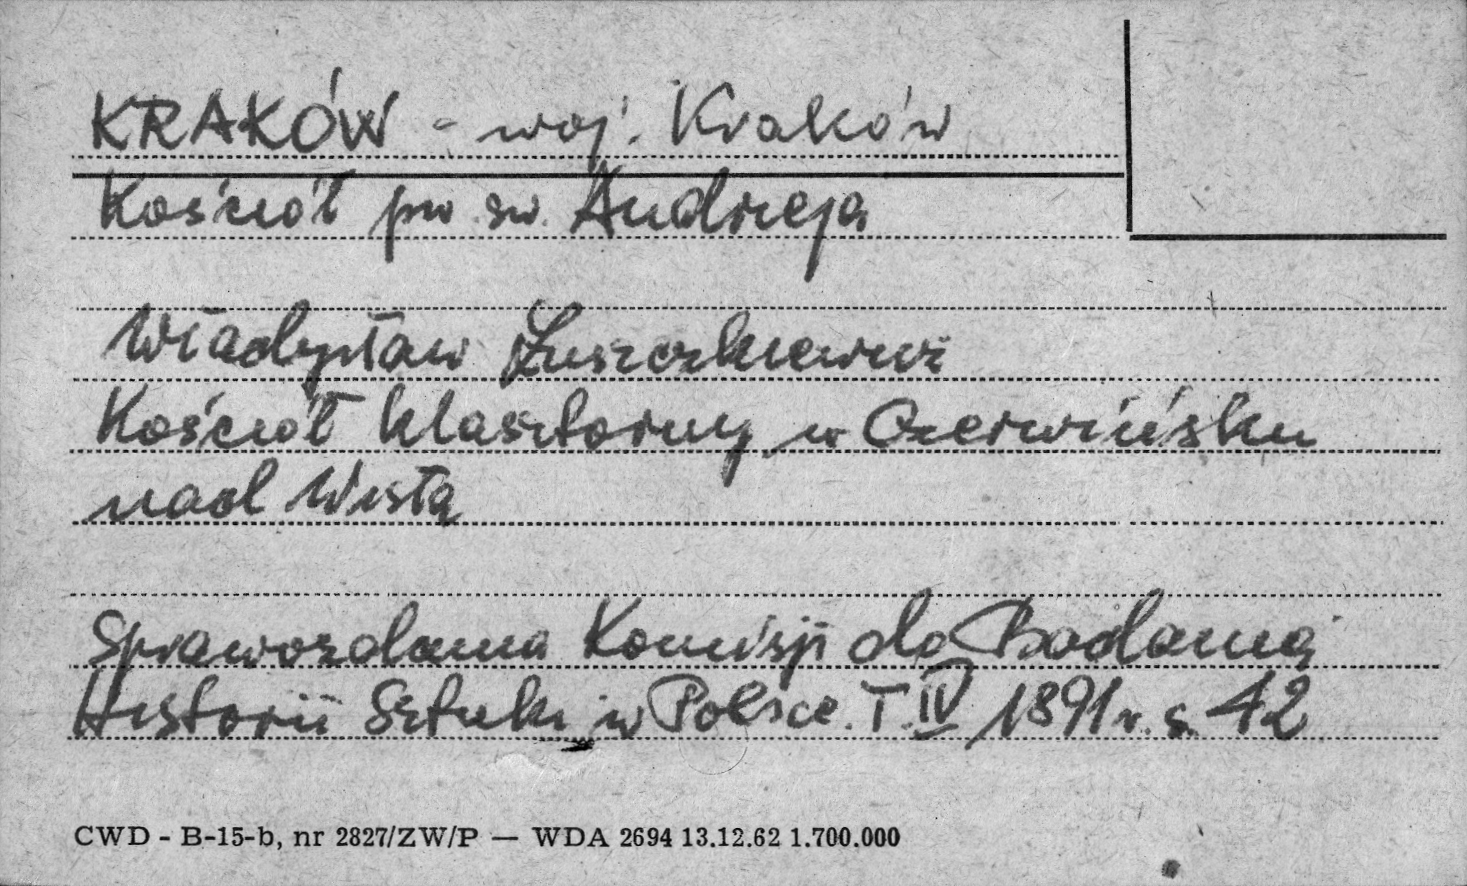 KRAKÓW - woj. Kraków
Kościół pw. św. Andrzeja
Władysław Łuszczkiewicz
Kościół klasztorny w Czerwińsku
nad Wisłą
Sprawozdania Komisji do Badania
Historii Sztuki w Polsce. T. IV 1891 r. s. 42
CWD - B-15-b, nr 2827/ZW/P — WDA 2694 13.12.62 1.700.000